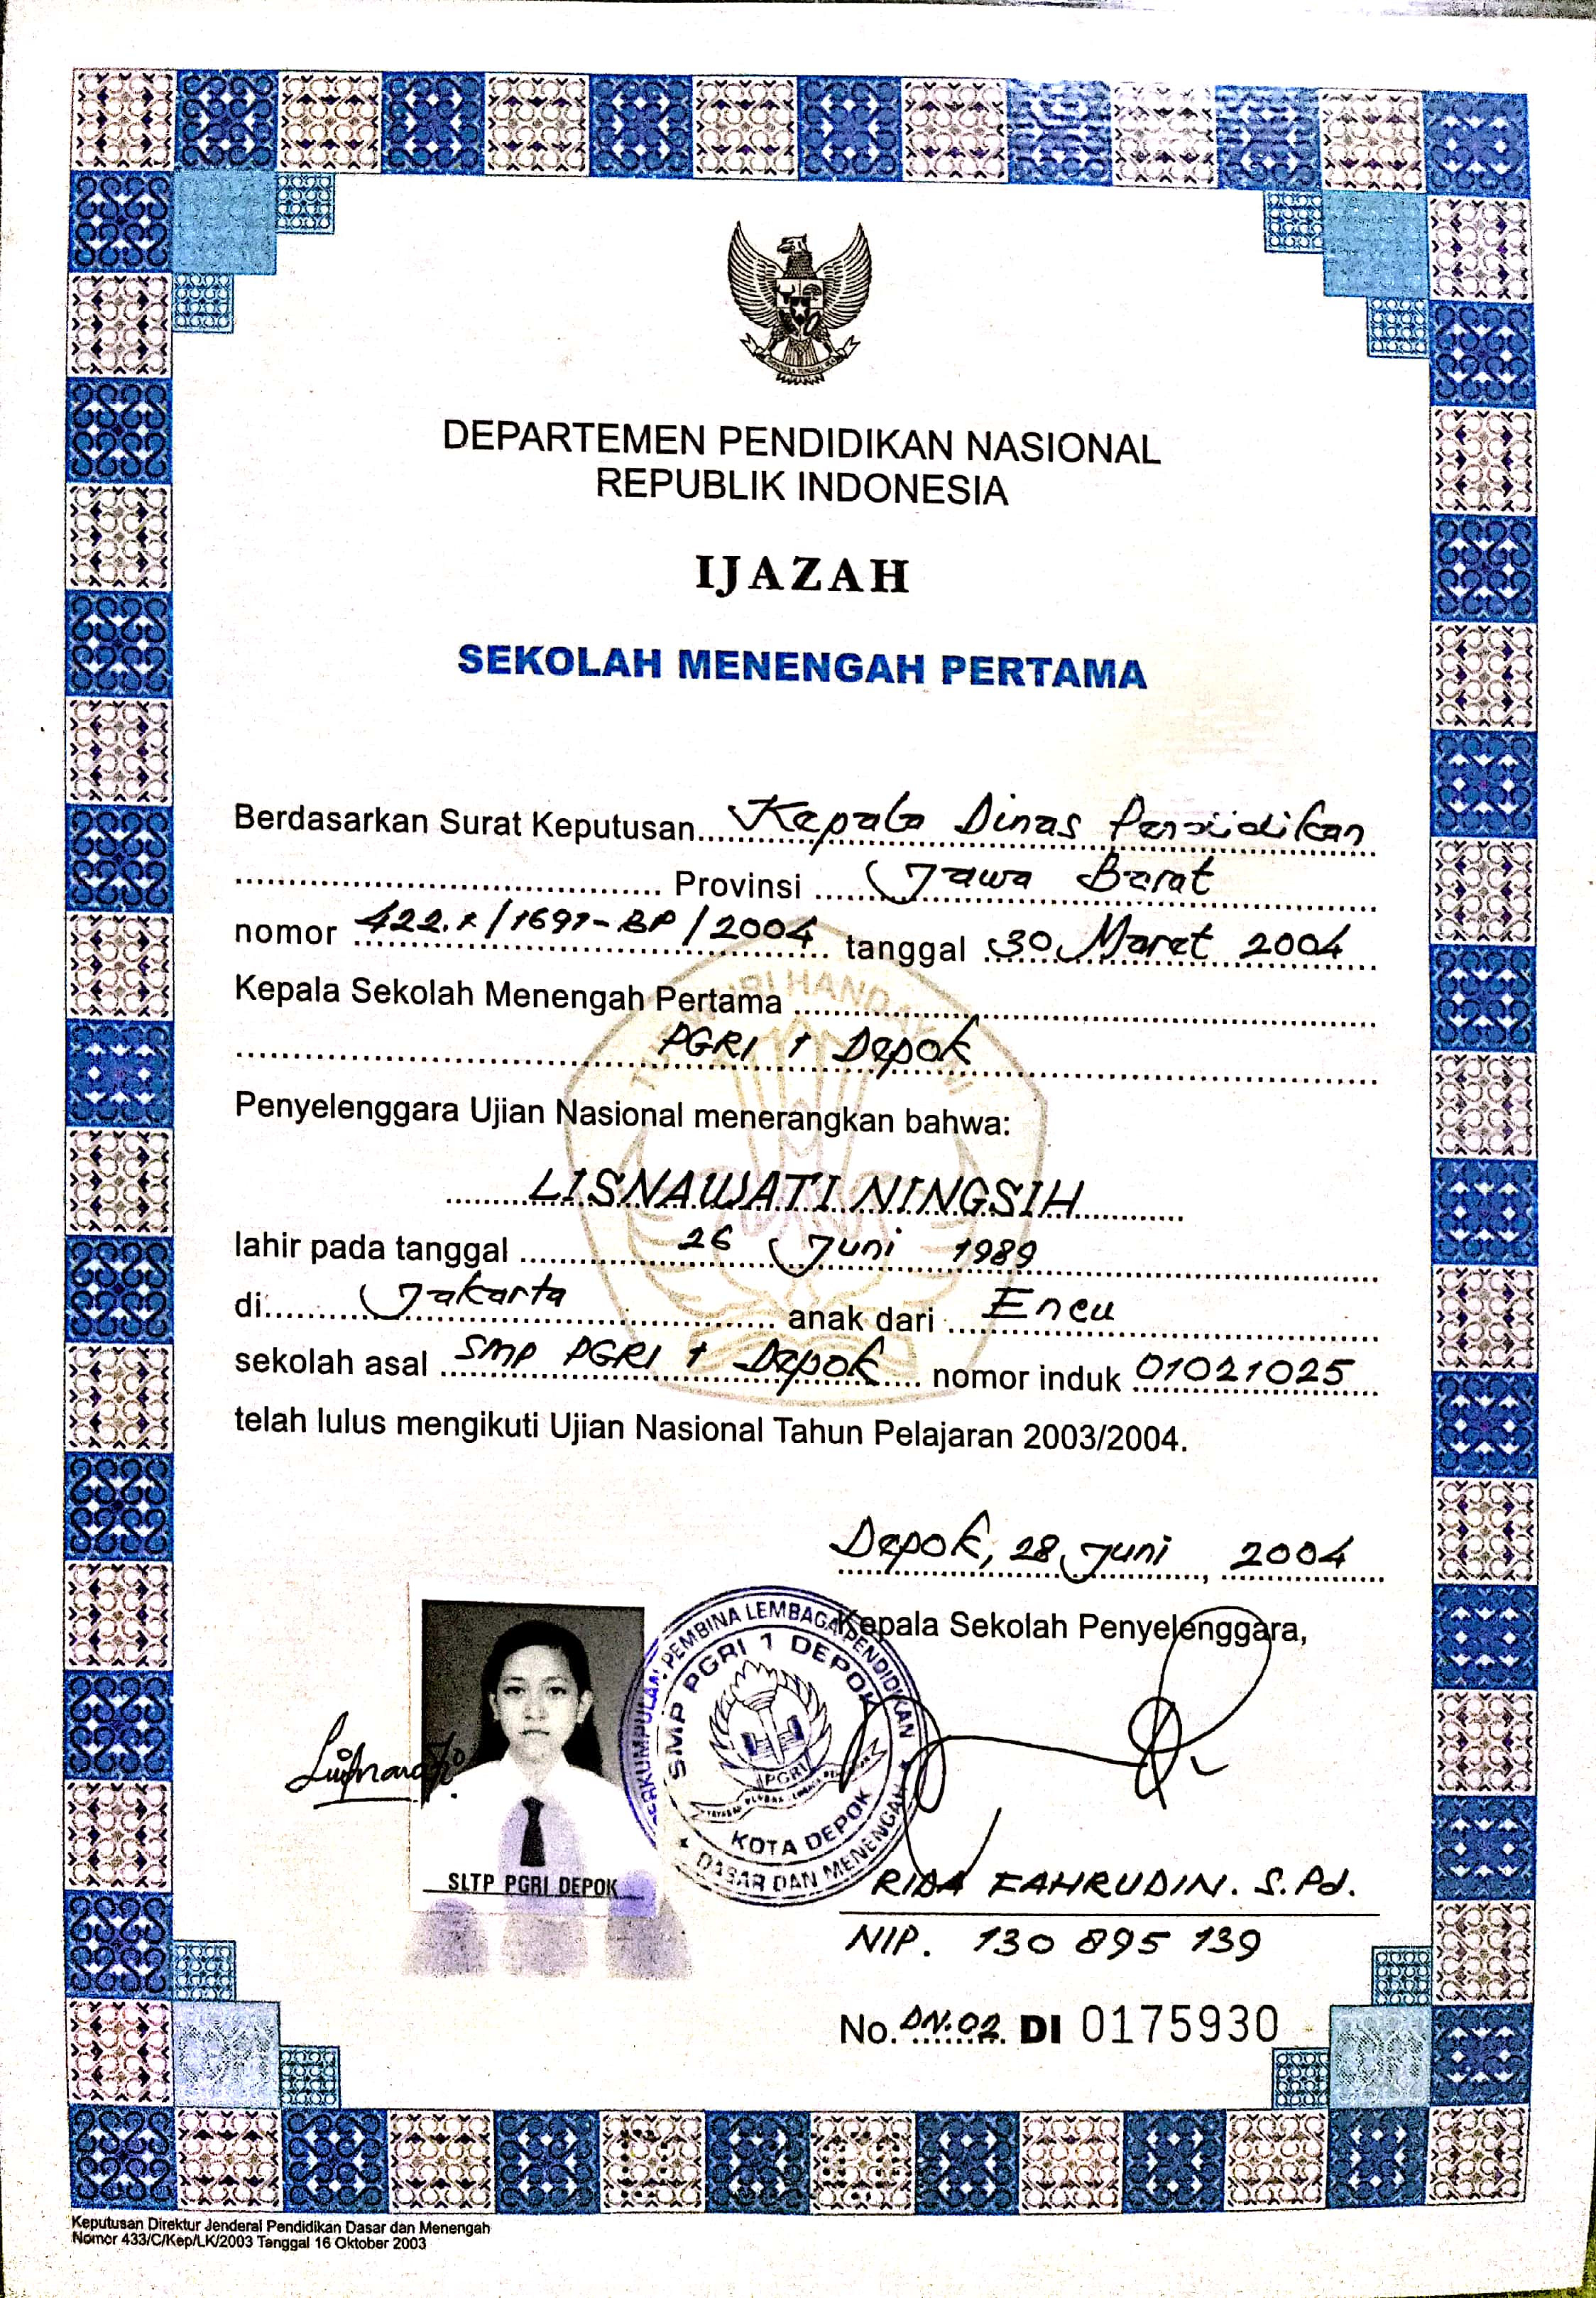 DEPARTEMEN PENDIDIKAN NASIONAL
REPUBLIK INDONESIA
IJAZAH
SEKOLAH MENENGAH PERTAMA
Berdasarkan Surat Keputusan Kepala Dinas Pendidikan
Provinsi Jawa Barat
nomor 422.1/1691-BP/2004 tanggal 30 Maret 2004
Kepala Sekolah Menengah Pertama
PGRI 1 Depok
Penyelenggara Ujian Nasional menerangkan bahwa:
LISNAWATI NINGSIH
lahir pada tanggal 26 Juni 1989
di Jakarta anak dari Encu
sekolah asal SMP PGRI 1 Depok nomor induk 01021025
telah lulus mengikuti Ujian Nasional Tahun Pelajaran 2003/2004.
Depok, 28 Juni, 2004
Kepala Sekolah Penyelenggara,
PERKUMPULAN PEMBINA LEMBAGA PENDIDIKAN
DASAR DAN MENENGAH
SMP PGRI 1 DEPOK
PGRI
KOTA DEPOK
Lisnawati
SLTP PGRI DEPOK
RIDA FAHRUDIN. S.Pd.
NIP. 130 895 139
No. DN.02 DI 0175930
Keputusan Direktur Jenderal Pendidikan Dasar dan Menengah
Nomor 433/C/Kep/LK/2003 Tanggal 16 Oktober 2003
TUT WURI HANDAYANI